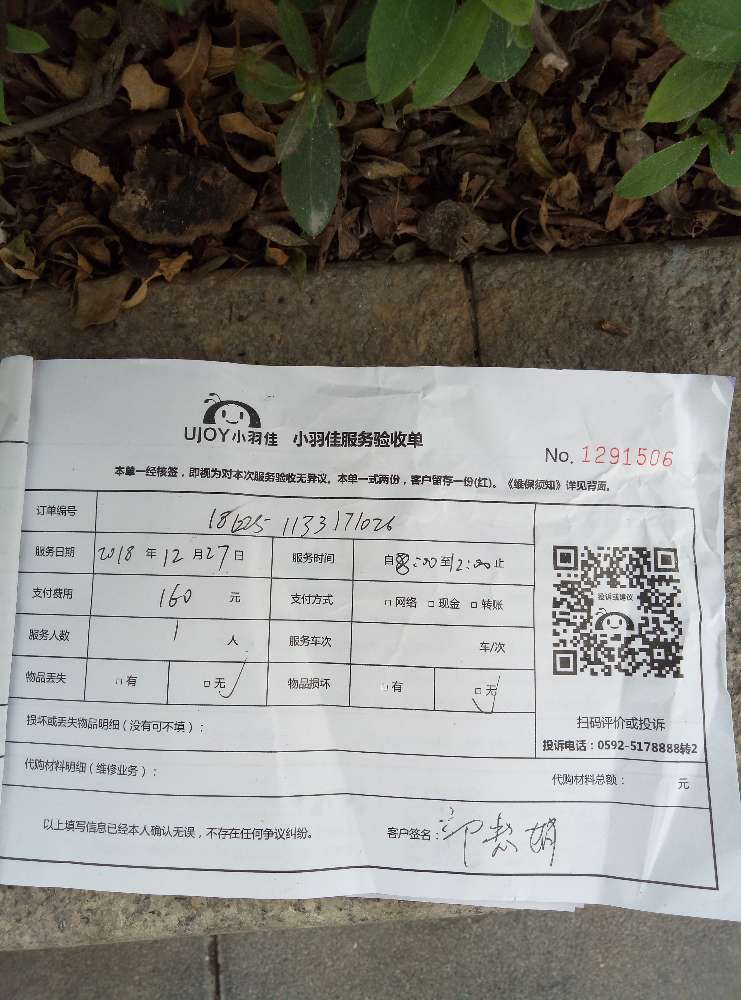 UJOY小羽佳 小羽佳服务验收单
No. 1291506
本单一经核签，即视为对本次服务验收无异议。本单一式两份，客户留存一份(红)。《维保须知》详见背面。
订单编号
服务日期 2018 年 12 月 27 日 服务时间 自 8:00 到 12:00 止
支付费用 160 元 支付方式 □ 网络 □ 现金 □ 转账
服务人数 1 人 服务车次 车/次
物品丢失 □ 有 □ 无 ✓ 物品损坏 □ 有 □ 无 ✓
投诉或建议
扫码评价或投诉
投诉电话：0592-5178888转2
损坏或丢失物品明细（没有可不填）：
代购材料明细（维修业务）： 代购材料总额： 元
以上填写信息已经本人确认无误，不存在任何争议纠纷。 客户签名：